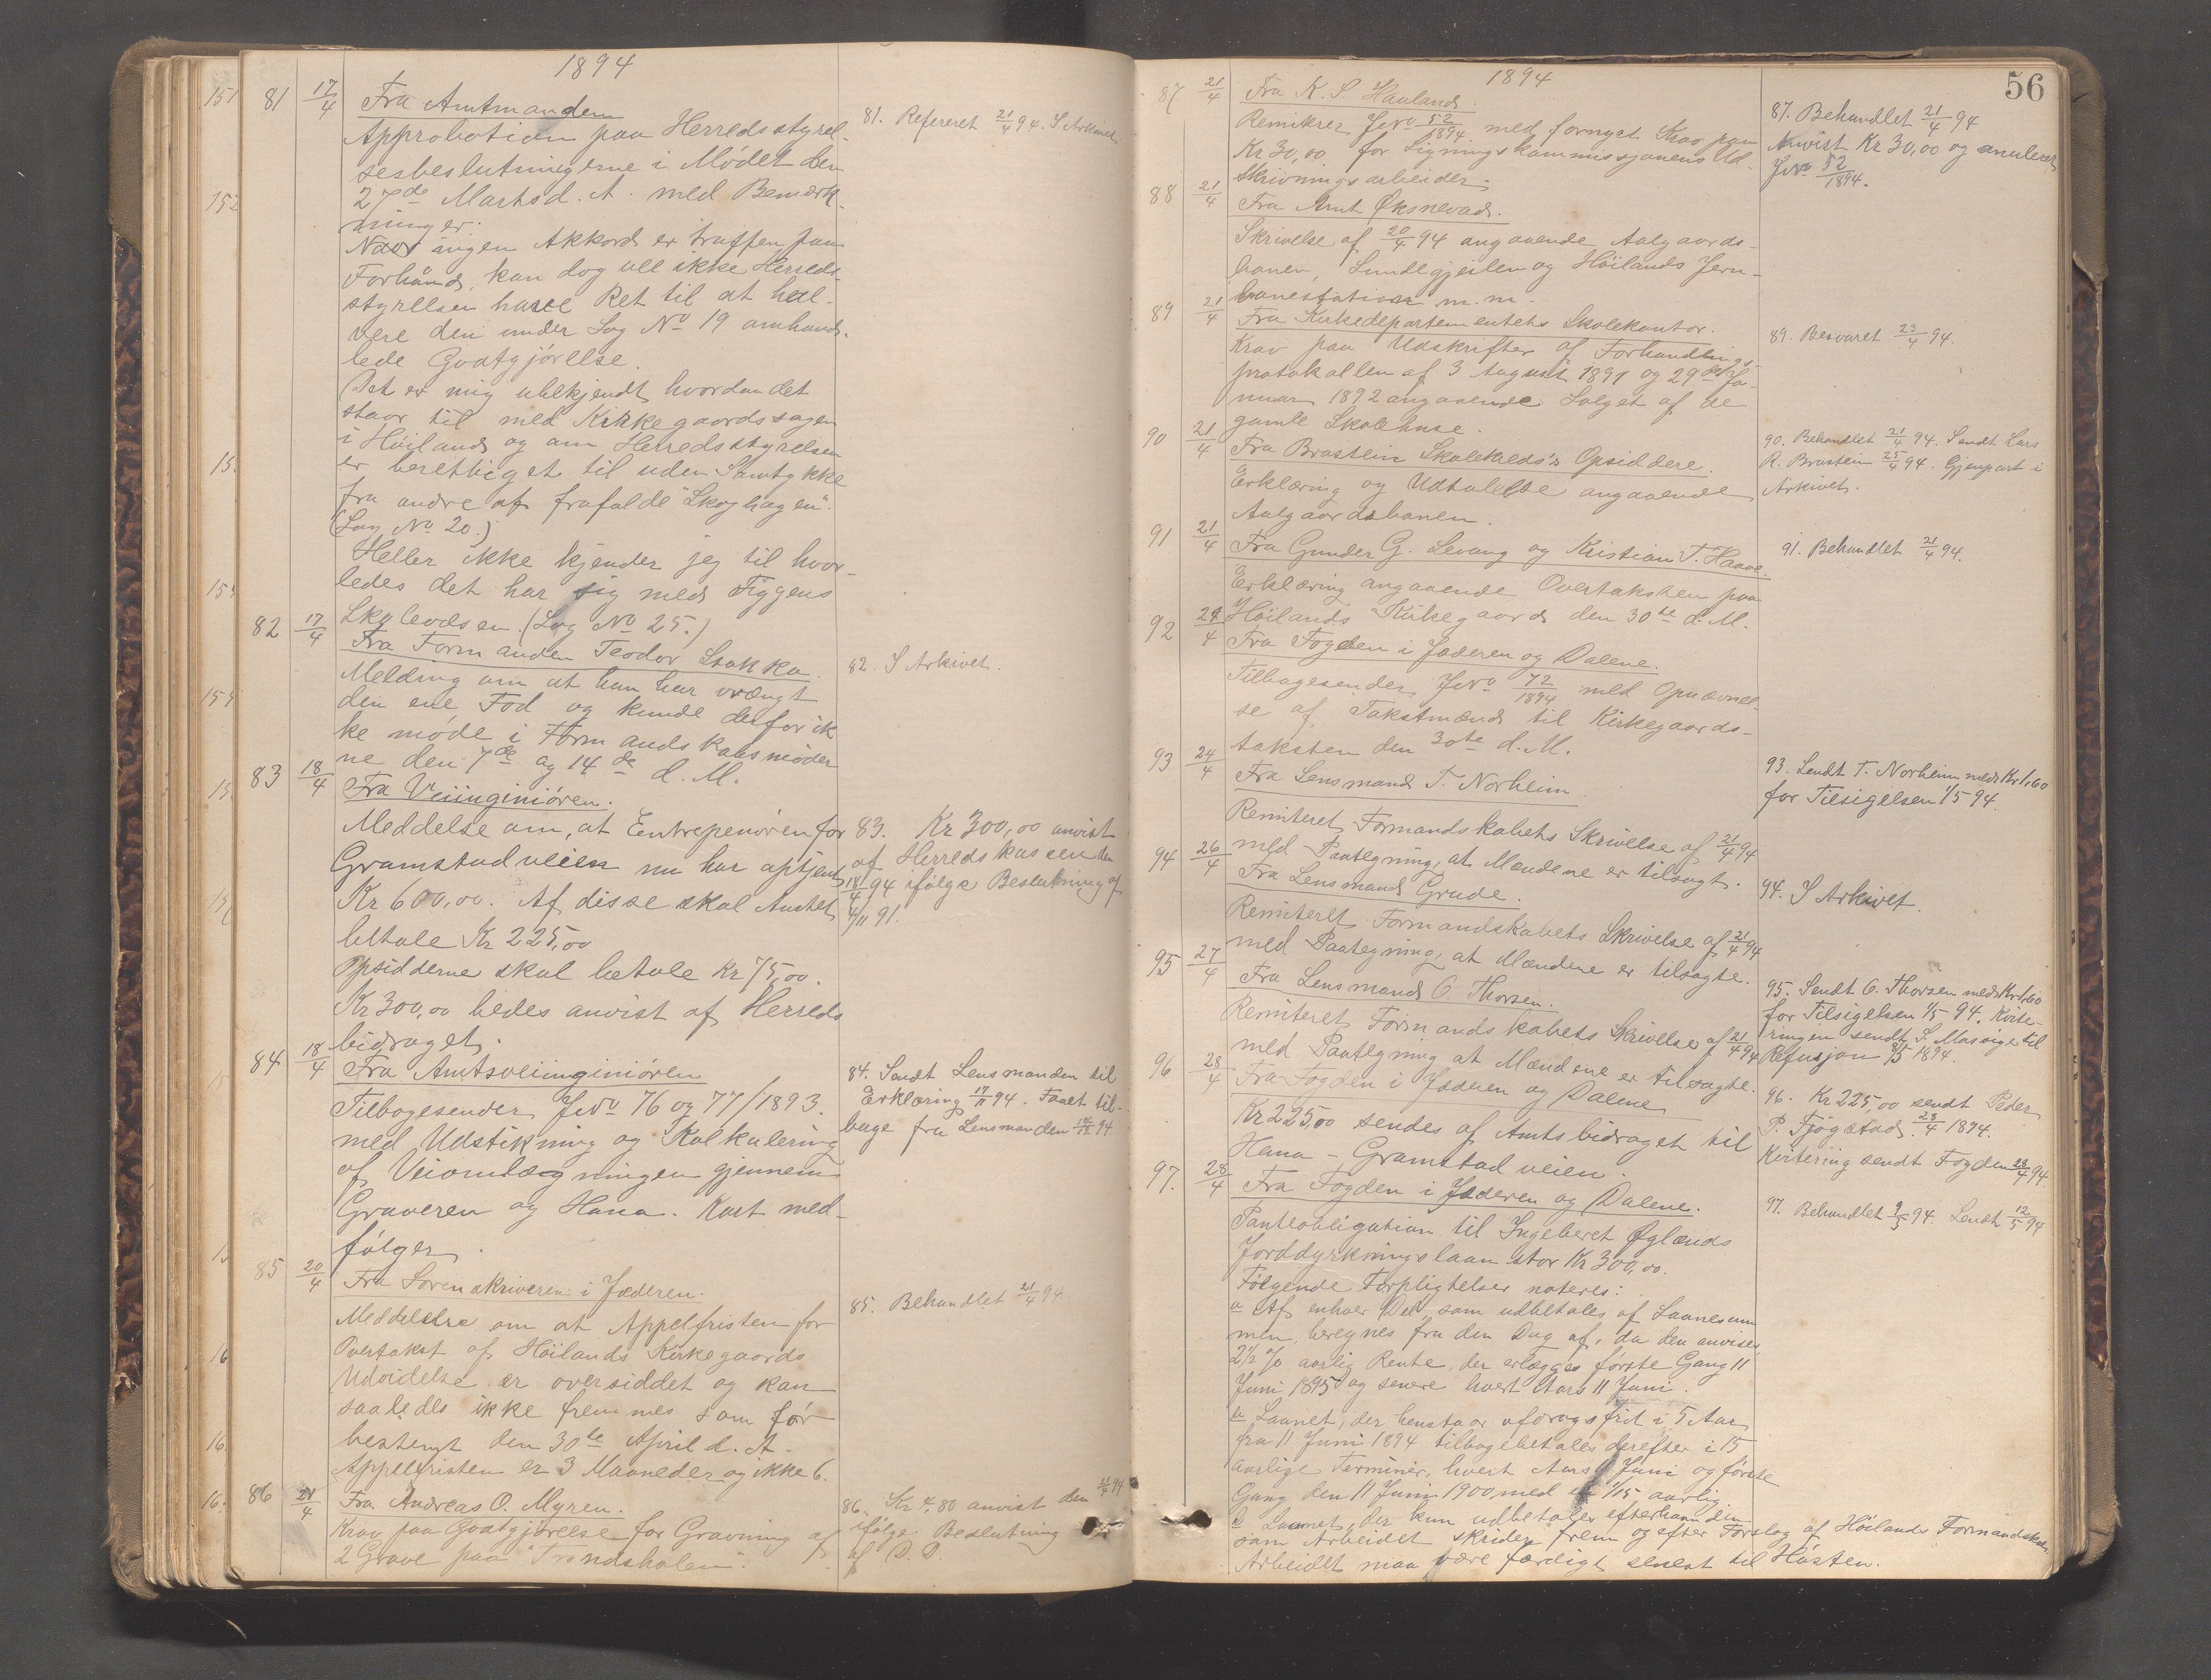 1894
81 17/4 Fra Amtmanden
Approbation paa Herredsstyrel-
sesbeslutningerne i Mødet den
27de Marts d. A. med Bemærk-
ninger:
Naar ingen Akkord er truffen paa
Forhånd, kan dog vel ikke Herreds-
styrelsen have Ret til at hal-
vere den under Sag No 19 omhand-
lede Godtgjørelse.
(Det er mig ubekjendt hvordan det
staar til med Kirkegaardssagen
i Høiland og om Herredsstyrelsen
er berettiget til uden Samtykke
fra andre at frafalde "Skoghagen".
(Sag No 20.)
Heller ikke kjender jeg til hvor-
ledes det har sig med Figgens
(Sag No 25.)
81. Refereret 21/4 94. I Arkivet
82 17/4 Fra Formanden Teodor Stokka.
Melding om at han har vrængt
den ene Fod og kunde derfor ik
ke møde i Formandskabsmøder
ne den 7de og 14de d. M.
82. I Arkivet.
83 18/4 Fra Veiinginiøren.
Meddelse om, at Entrepenøren for
Gramstadveien nu har optjent
Kr 600,00. Af disse skal Amtet
betale Kr 225,00
Opsidderne skal betale Kr 75,00.
Kr 300,00 bedes anvist af Herreds
bidraget.
83. Kr 300,00 anvist
af Herredskassen den
18/4 94 ifølge Beslutning af
4/11 91.
84 18/4 Fra Amtsveiinginiøren
Tilbagesender Jvno 76 og 77/1893.
med Udstikning og Kalkulering
af Veiomlægningen gjennem
Graveren og Hana. Kart med-
følger.
84. Sendt Lensmanden til
Erklæring 17/11 94. Faaet til-
bage fra Lensmanden 94
85 20/4 Fra Sorenskriveren i Jæderen.
Meddelelse om at Appelfristen for
Overtakst af Høilands Kirkegaards
Udvidelse er oversiddet og kan
saaledes ikke fremmes som før
bestemt den 30te April d. A.
Appelfristen er 3 Maaneder og ikke 6.
85. Behandlet 21/4 94
86 21/4 Fra Andreas O. Myren.
Krav paa Godtgjørelse for Gravning af
2 Grave paa "Trondsholen".
86. Kr 4,80 anvist den 21/4 94
ifølge Beslutning
af D. D.
1894
56
87 21/4 Fra K. S. Hauland.
Remitrer Jvno 52/1894 med fornyet Krav paa
Kr 30,00 for Ligningskommissjonens Ud-
skrivningsarbeider.
87. Behandlet 21/4 94
Anvist Kr 30,00 og anuleret
Jvno 52/1894.
88 21/4 Fra Amt Øksnevad.
Skrivelse af 20/4 94 angaaende Aalgaards-
banen, Lundegjeilen og Høilands Jern-
banestation m. m.
89 21/4 Fra Kirkedepartementets Skolekontor.
Krav paa Udskrifter af Forhandlings-
protokollen af 3 August 1891 og 29de Ja-
nuar 1892 angaaende Salget af de
gamle Skolehuse.
89. Besvaret 23/4 94.
90 21/4 Fra Brastein Skolekreds's Opsiddere.
Erklæring og Udtalelse angaaende
Aalgaardsbanen.
90. Behandlet 21/4 94. Sendt Lars
R. Brastein 25/4 94. Gjenpart i
Arkivet.
91 21/4 Fra Gunder G. Levang og Kristian T. Haave.
Erklæring angaaende Overtaksten paa
Høilands Kirkegaard den 30te d. M.
91. Behandlet 21/4 94.
92 24/4 Fra Fogden i Jæderen og Dalene.
Tilbagesender Jvno 72/1894 med Opnævnel-
se af Takstmænd til Kirkegaards-
taksten den 30te d. M.
93 24/4 Fra Lensmand T. Norheim.
Remiteret Formandskabets Skrivelse af 21/4 94
med Paategning, at Mændene er tilsagt.
93. Sendt T. Norheim med Kr 1,60
for Tilsigelsen 1/5 94.
94 26/4 Fra Lensmand Grude.
Remiteret Formandskabets Skrivelse af 21/4 94
med Paategning, at Mændene er tilsagte.
94. I Arkivet.
95 27/4 Fra Lensmand O. Thorsen.
Remiteret Formandskabets Skrivelse af 21/4 94
med Paategning at Mændene er tilsagte.
95. Sendt O. Thorsen med Kr 1,60
for Tilsigelsen 1/5 94. Kvite-
ringen sendt S. Masvige til
Refusjon 8/5 1894.
96 28/4 Fra Fogden i Jæderen og Dalene
Kr 225,00 sendes af Amtsbidraget til
Hana - Gramstadveien.
96. Kr 225,00 sendt Peder
P. Fjogstad. 28/4 1894.
Kvitering sendt Fogden 28/4 94
97. 28/4 Fra Fogden i Jæderen og Dalene.
Panteobligation til Ingeberet Øglænds
Jorddyrkningslaan stor Kr 300,00.
Følgende Forpligtelser noteres:
a Af enhver Del, som udbetales af Laanesum
men, beregnes fra den Dag af, da den anvises,
2½ % aarlig Rente, der erlægges første Gang 11
Juni 1895 og senere hvert Aars 11 Juni.
b Laanet, der henstaar afdragsfrit i 5 Aar
fra 11 Juni 1894 tilbagebetales derefter i 15
aarlige Terminer, hvert Aars 11 Juni og første
Gang den 11 Juni 1900 med 1/15 aarlig.
c Laanet, der kun udbetales efterhaanden
som Arbeidet skrider frem og efter Forslag af Høilands Formandskab,
Arbeidet maa være færdigt senest til Høsten.
97. Behandlet 9/5 94. Sendt 12/5 94